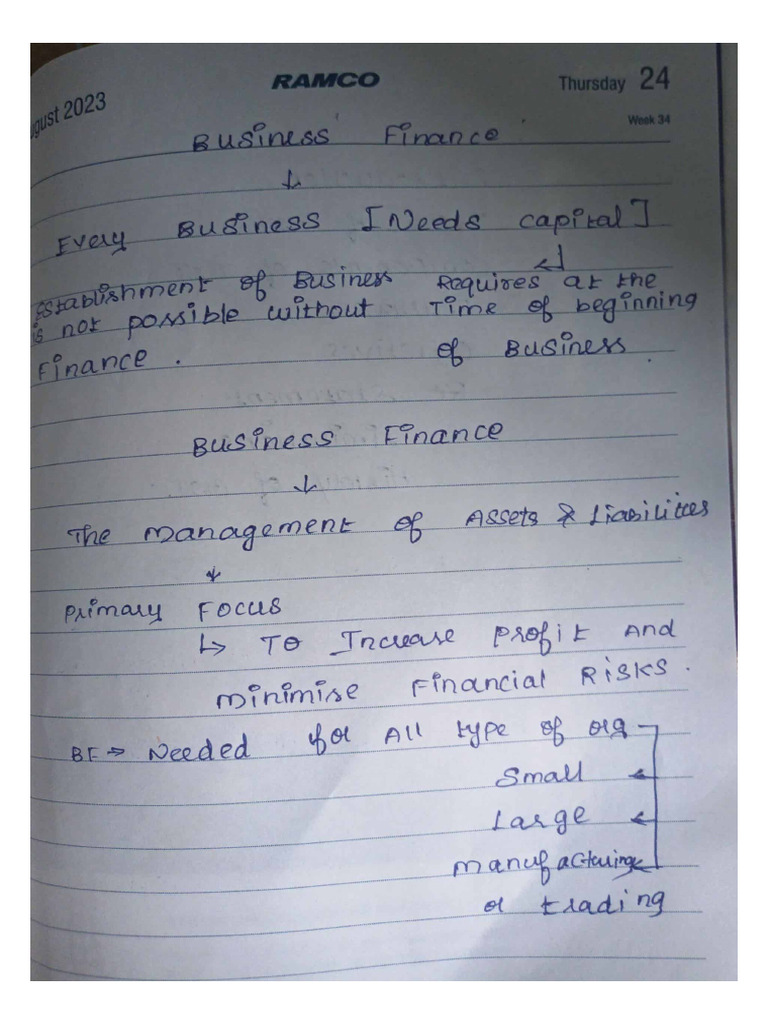 August 2023 RAMCO Thursday 24
Week 34
Business Finance
↓
Every Business [Needs capital]
Establishment of Business Requires at the
is not possible without Time of beginning
Finance. of Business.
Business Finance
↓
The Management of Assets & Liabilities
↓
Primary Focus
↳ To Increase Profit And
Minimise Financial Risks.
BF → Needed for All type of org
Small
Large
Manufacturing
or trading